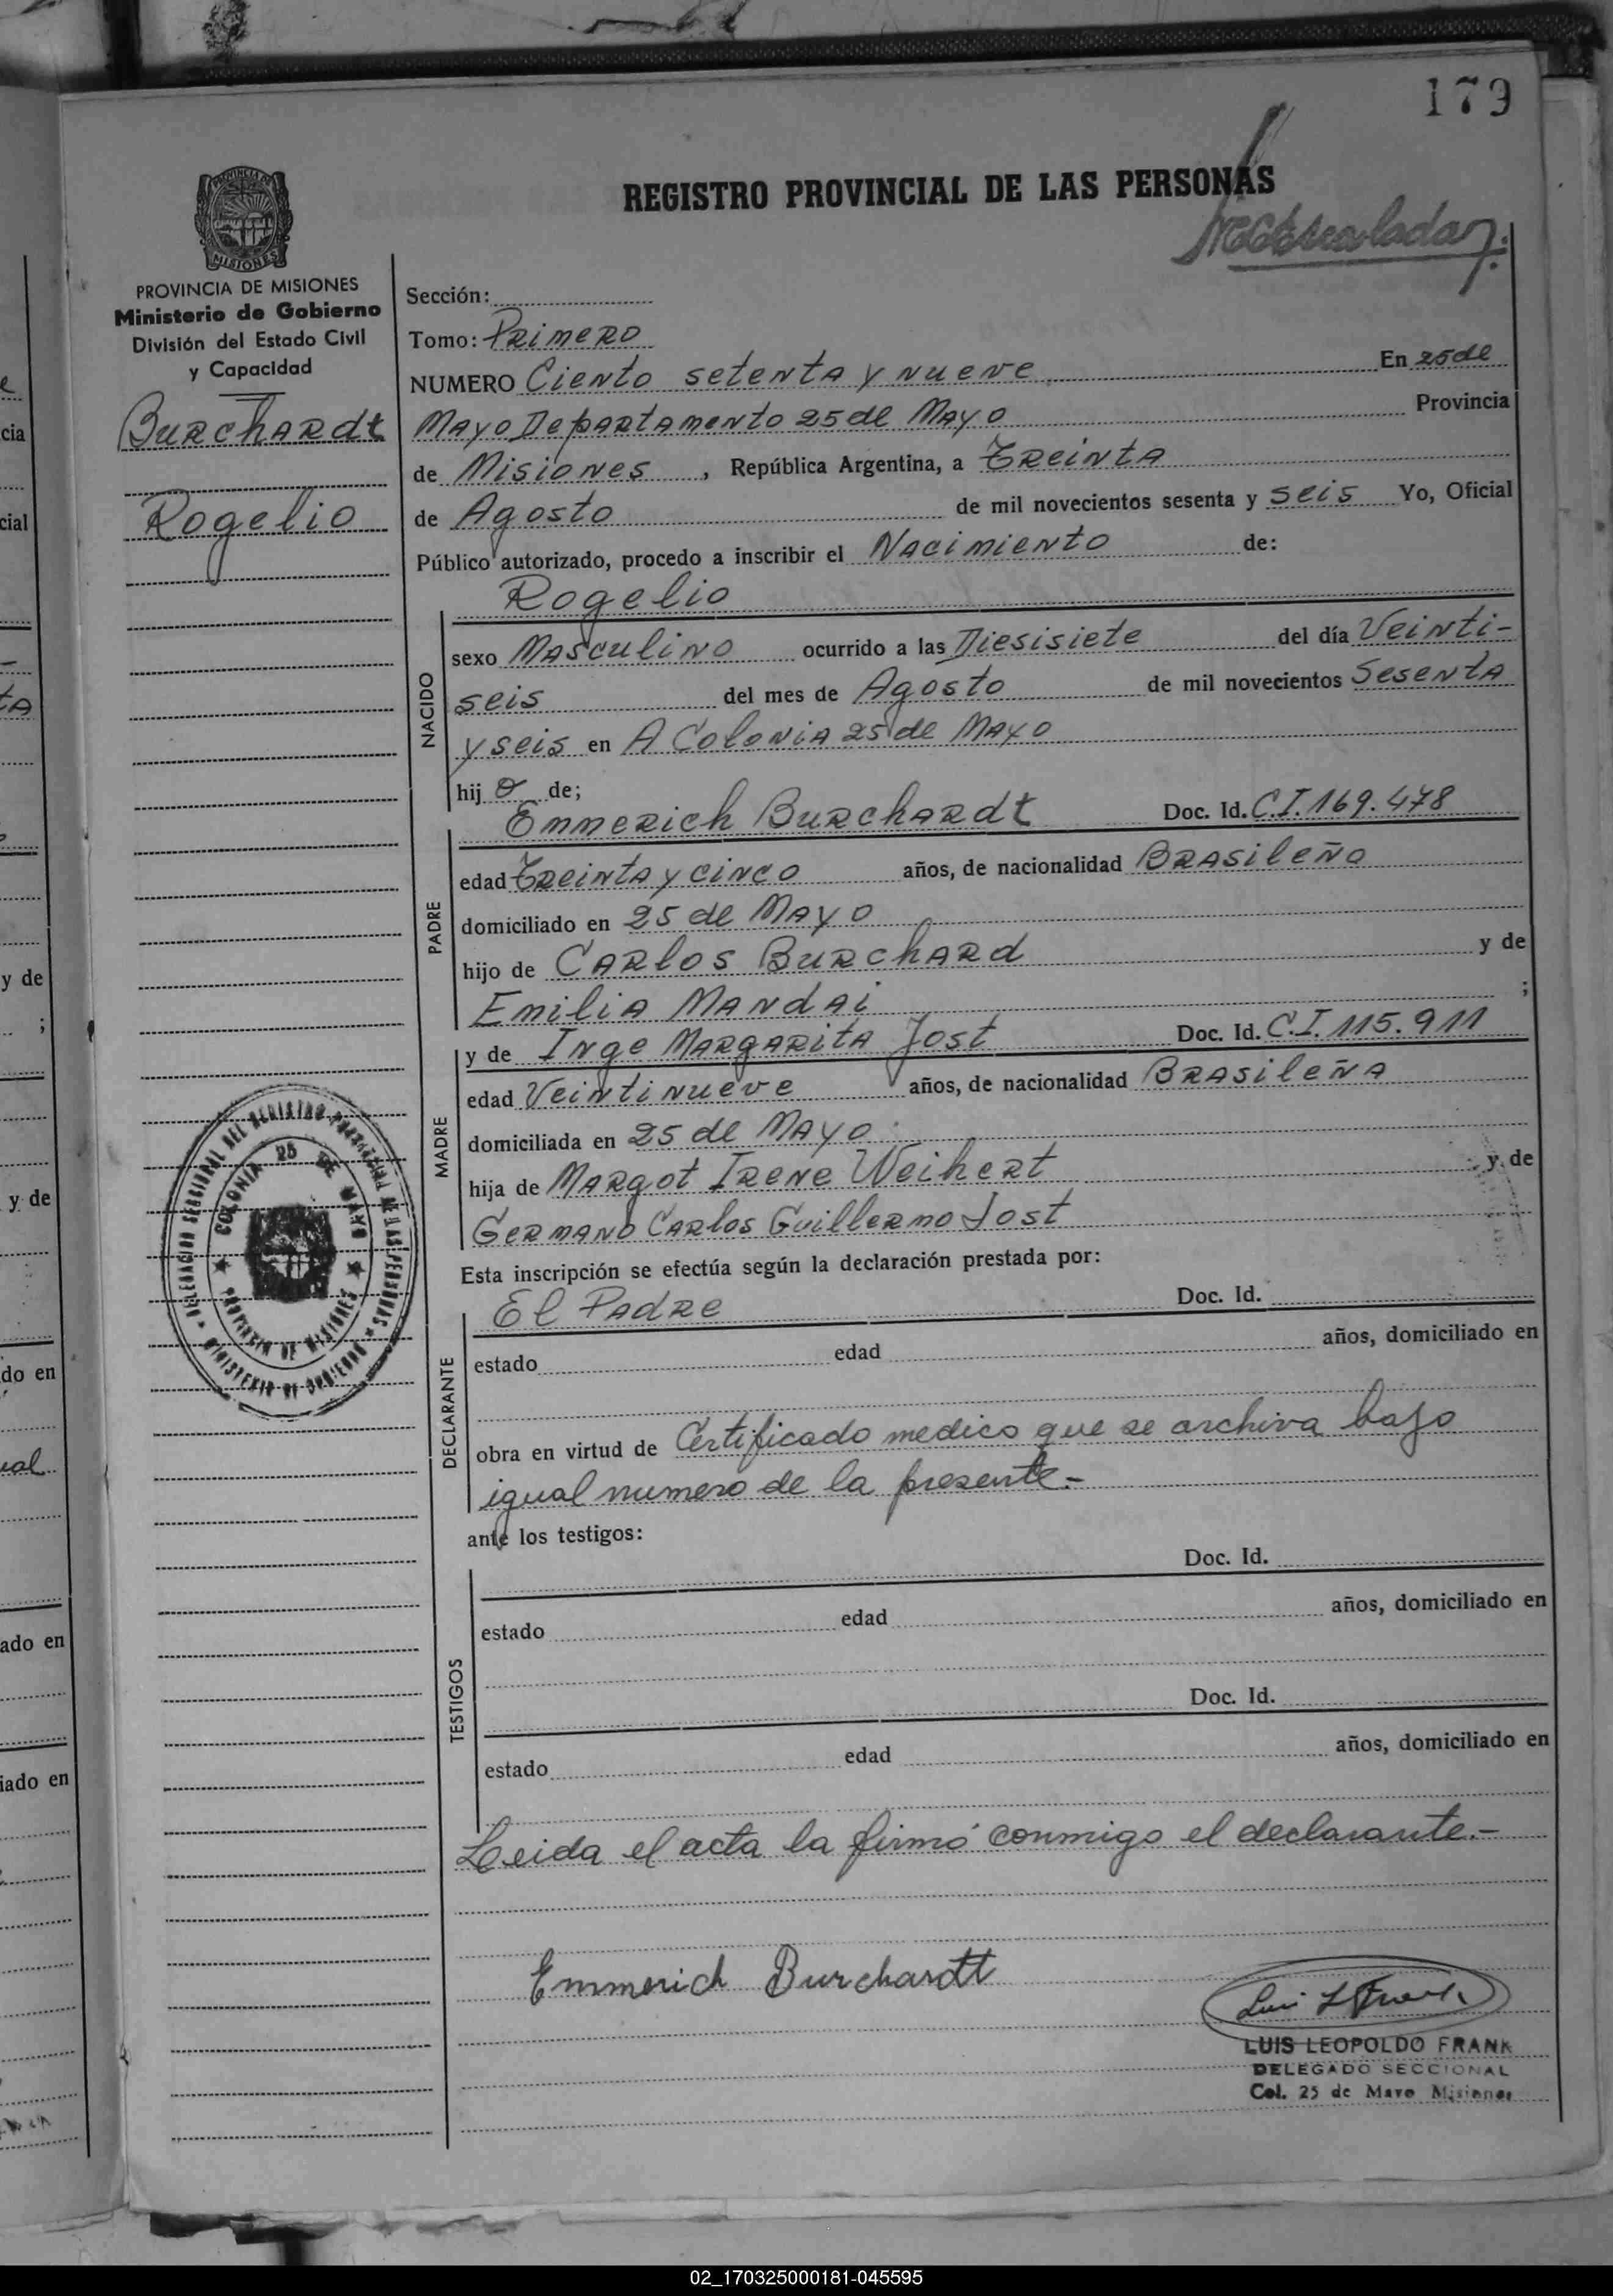 179
REGISTRO PROVINCIAL DE LAS PERSONAS
PROVINCIA DE MISIONES
Ministerio de Gobierno
División del Estado Civil
y Capacidad
Burchardt
Rogelio
Sección:
Tomo: Primero
NUMERO Ciento setenta y nueve En 25 de
Mayo Departamento 25 de Mayo Provincia
de Misiones, República Argentina, a Treinta
de Agosto de mil novecientos sesenta y seis Yo, Oficial
Público autorizado, procedo a inscribir el Nacimiento de:
Rogelio
NACIDO
sexo Masculino ocurrido a las Diesisiete del día Veinti-
seis del mes de Agosto de mil novecientos Sesenta
y seis en A Colonia 25 de Mayo
hij o de;
Emmerich Burchardt Doc. Id. C.I. 169.478
PADRE
edad Treinta y cinco años, de nacionalidad Brasileño
domiciliado en 25 de Mayo
hijo de Carlos Burchard y de
Emilia Mandai ;
y de Inge Margarita Jost Doc. Id. C.I. 115.911
MADRE
edad Veintinueve años, de nacionalidad Brasileña
domiciliada en 25 de Mayo
hija de Margot Irene Weihert y de
Germano Carlos Guillermo Jost
Esta inscripción se efectúa según la declaración prestada por:
El Padre Doc. Id.
DECLARANTE
estado edad años, domiciliado en
obra en virtud de Certificado medico que se archiva bajo
igual numero de la presente.-
ante los testigos:
Doc. Id.
TESTIGOS
estado edad años, domiciliado en
Doc. Id.
estado edad años, domiciliado en
Leida el acta la firmó conmigo el declarante.-
Emmerich Burchardt
LUIS LEOPOLDO FRANK
DELEGADO SECCIONAL
Col. 25 de Mayo Misiones
DELEGACION SECCIONAL DEL REGISTRO PROVINCIAL DE LAS PERSONAS
MINISTERIO DE GOBIERNO
COLONIA 25 DE MAYO
PROVINCIA DE MISIONES
02_170325000181-045595